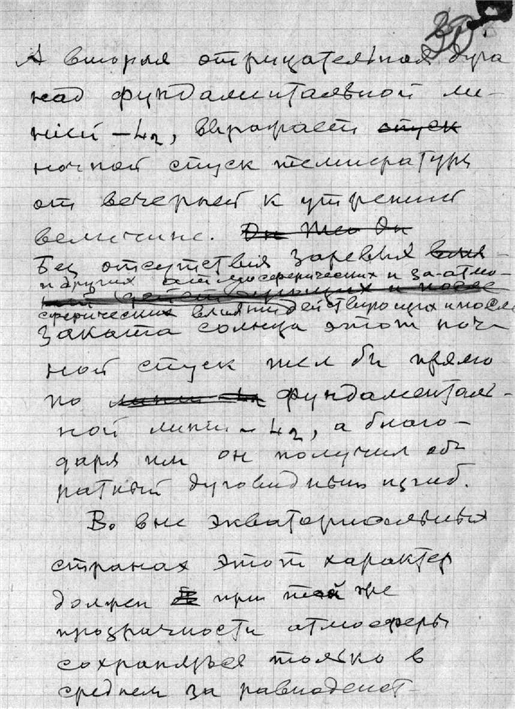 А вторая отрицательная дуга
над фундаментальной ли-
нией –4₂, выражает спуск
ночной спуск температуры
от вечерней к утренней
величине. Он же Он
Без отсутствия заревых
и других атмосферических и за-атмо-
и после
сферических влияний действующих и после
заката солнца этот ноч-
ной спуск шел бы прямо
по линии фундаменталь-
ной линии –4₂, а благо-
даря им он получил об
ратный дуговидный изгиб.
Во вне экваториальных
странах этот характер
должен при той же
прозрачности атмосферы
сохраняться только в
среднем за равноденст-